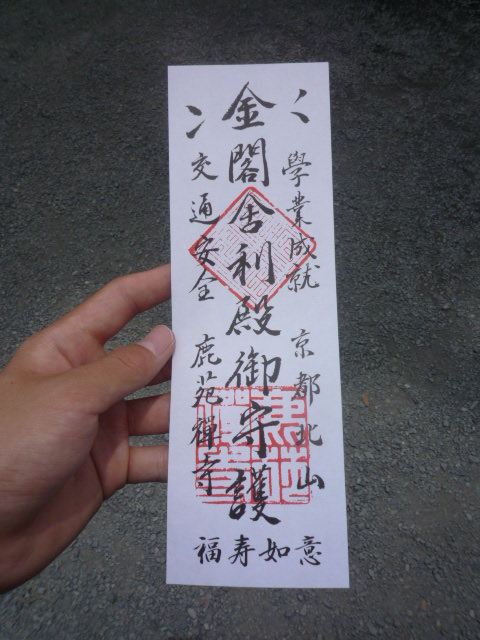 學業成就 京都北山
金閣舎利殿御守護
交通安全 鹿苑禅寺
福寿如意